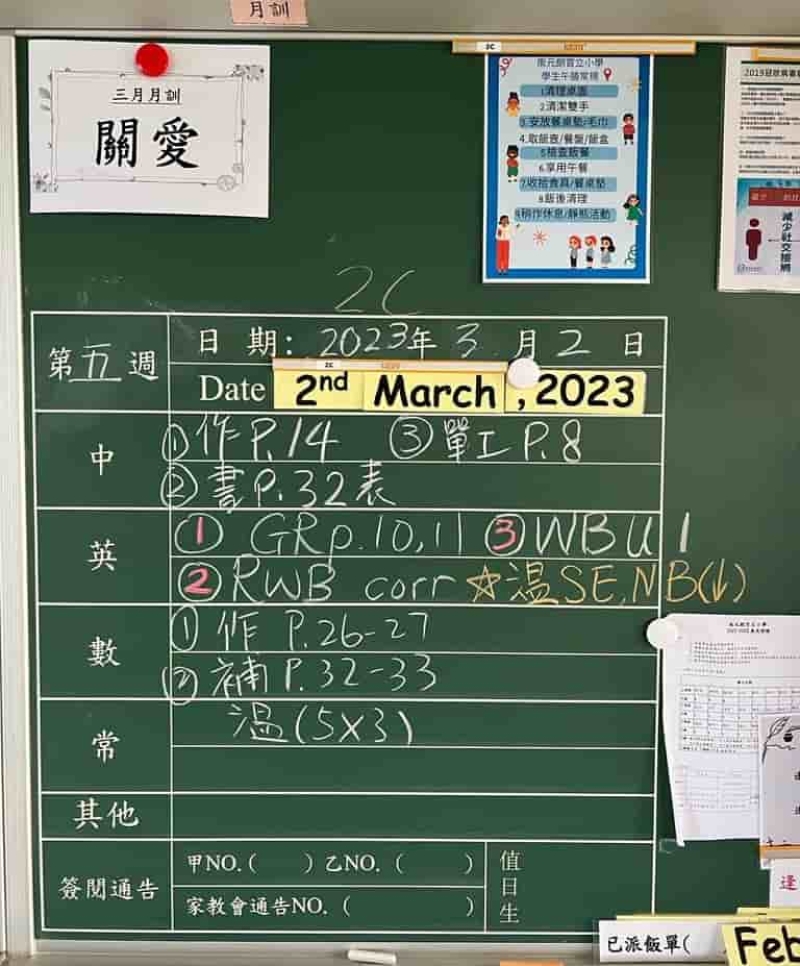 月訓
三月月訓
關愛
2C
學生午膳常規
1.清理桌面
2.清潔雙手
3.安放餐桌墊/毛巾
4.取飯壺/餐盤/飯盒
5.檢查飯餐
6.享用午餐
7.收拾食具/餐桌墊
8.飯後清理
9.稍作休息/靜態活動
減少社交接觸
2C
第五週
日期：2023年3月2日
Date 2nd March, 2023
中
①作P.14 ③單工P.8
②書P.32表
英
① GRp.10,11 ③WBU1
②RWB corr ☆溫SE,NB(↓)
數
①作 P.26-27
②補P.32-33
常
溫(5X3)
其他
簽閱通告
甲NO.( )乙NO.( )
家教會通告NO.( )
值日生
已派飯單(
Feb
逢